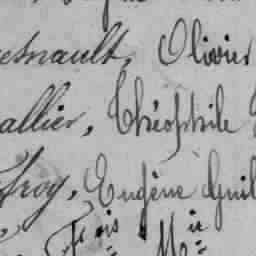 esnault, Olivier
allier, Théophile
froy, Eugène Guil
Fois Mie